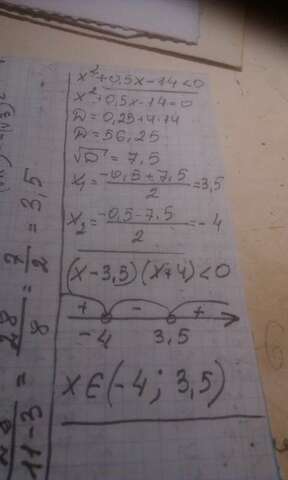 x²+0,5x-14<0
x²+0,5x-14=0
D=0,25+4·14
D=56,25
√D=7,5
x₁=(-0,5+7,5)/2=3,5
x₂=(-0,5-7,5)/2=-4
(x-3,5)(x+4)<0
+ - +
-4 3,5
x∈(-4; 3,5)
11-3 = 28/8 = 7/2 = 3,5